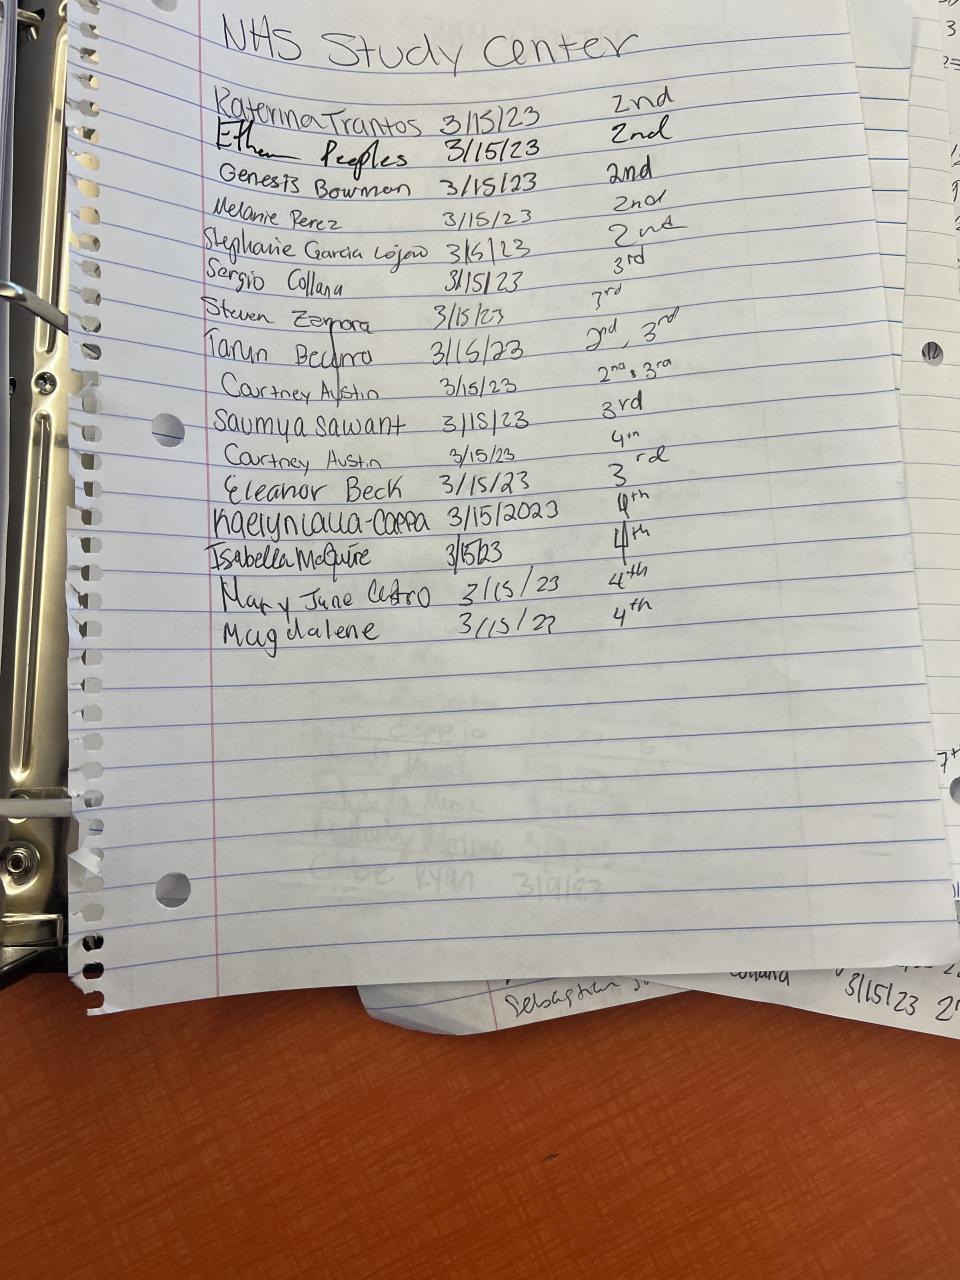 NHS Study Center
Katerina Trantos 3/15/23 2nd
Ethan Peeples 3/15/23 2nd
Genesis Bowman 3/15/23 2nd
Melanie Perez 3/15/23 2nd
Stephanie Garcia 3/15/23 2nd
Sergio Collana 3/15/23 3rd
Steven Zamora 3/15/23 3rd
Tarun 3/15/23 2nd, 3rd
Courtney Austin 3/15/23 2nd, 3rd
Saumya Sawant 3/15/23 3rd
Courtney Austin 3/15/23 4th
Eleanor Beck 3/15/23 3rd
3/15/2023 4th
Isabella McGuire 3/15/23 4th
Mary June Castro 3/15/23 4th
Magdalene 3/15/23 4th
Chloe Ryan 3/9/23
Sebastian
3/15/23